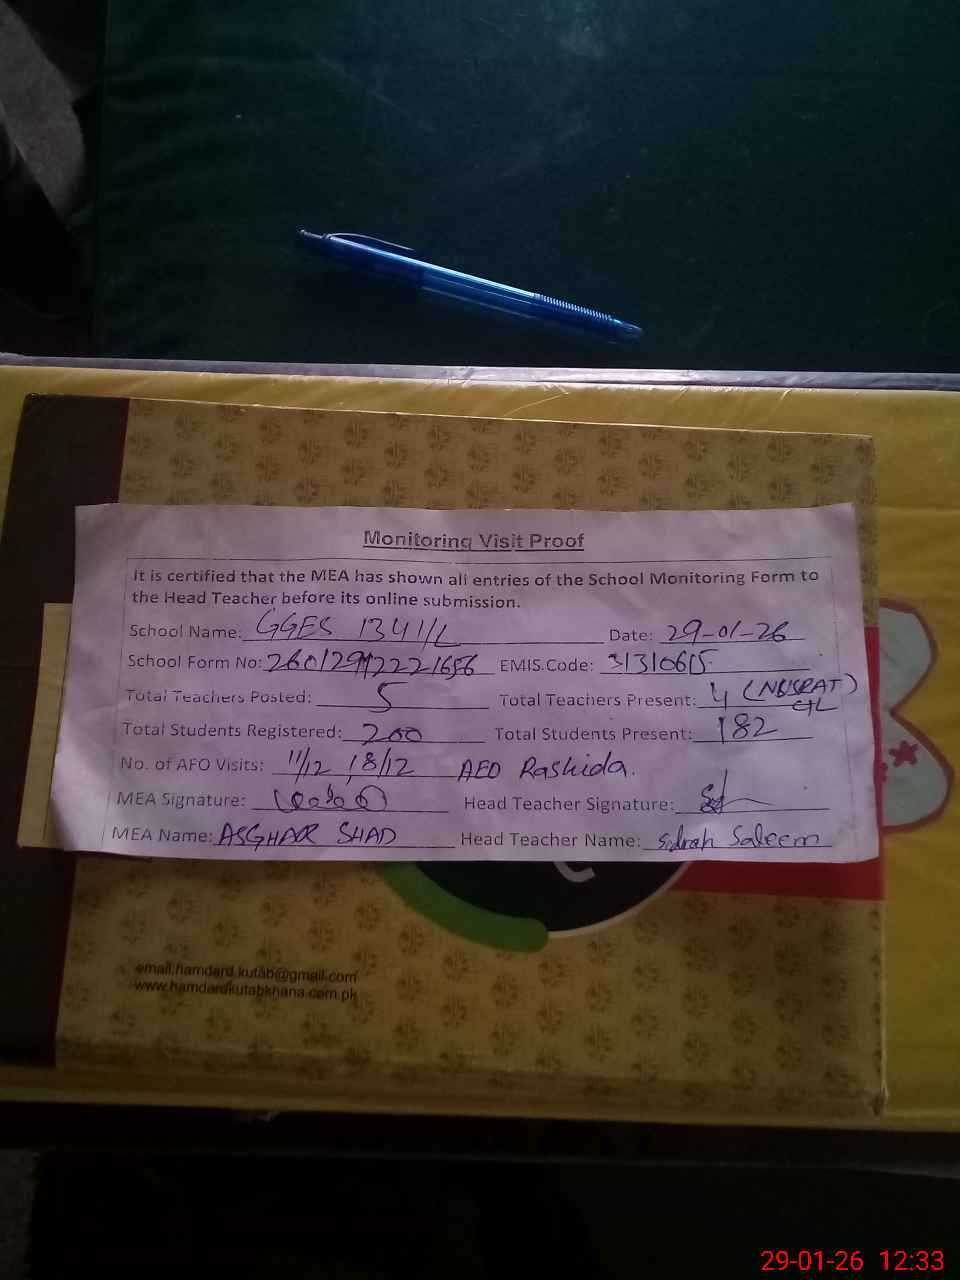 Monitoring Visit Proof
It is certified that the MEA has shown all entries of the School Monitoring Form to
the Head Teacher before its online submission.
School Name: GGES 134 1/L Date: 29-01-26
School Form No: EMIS Code: 31310605
Total Teachers Posted: 5 Total Teachers Present: 4 (NUSRAT)
Total Students Registered: 200 Total Students Present: 182
No. of AEO Visits: 11/12, 18/12 AEO Rashida.
MEA Signature: Head Teacher Signature:
MEA Name: ASGHAR SHAD Head Teacher Name: Sidrah Saleem
email:hamdard.kutab@gmail.com
www.hamdardkutabkhana.com.pk
29-01-26 12:33